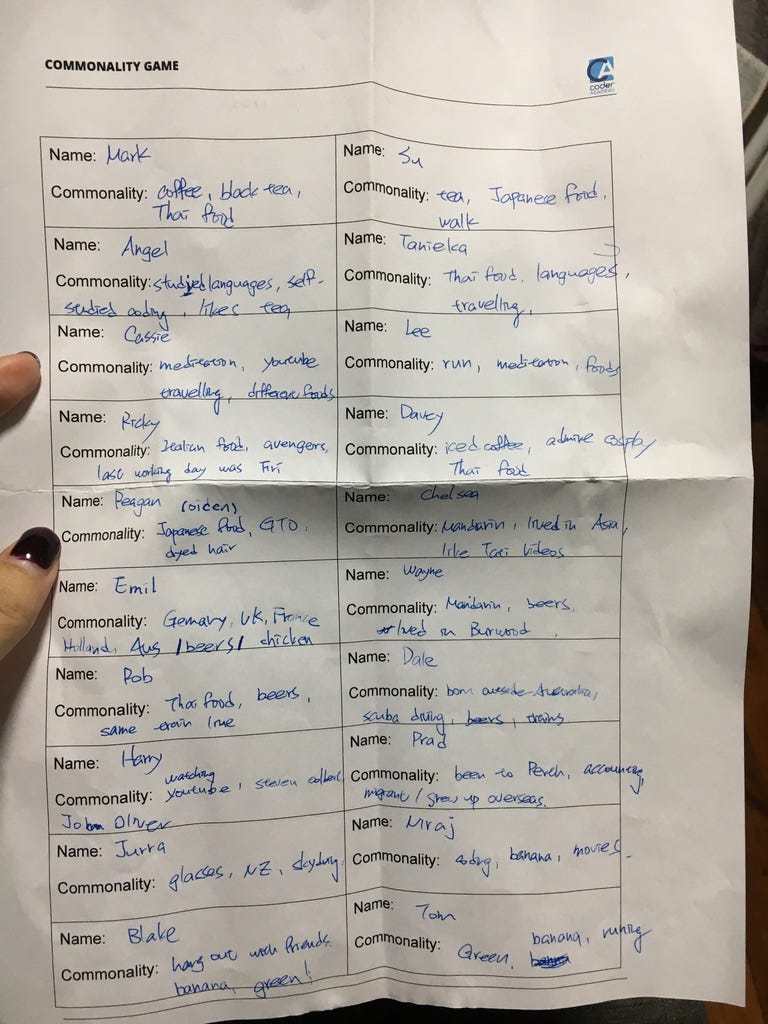 COMMONALITY GAME
CA
coder
ACADEMY
Name: Mark
Commonality: coffee, black tea,
Thai food
Name: Su
Commonality: tea, Japanese food,
walk
Name: Angel
Commonality: studied languages, self-
studied coding, likes tea
Name: Tanielka
Commonality: Thai food, languages,
travelling,
Name: Cassie
Commonality: meditation, youtube
travelling, different foods
Name: Lee
Commonality: run, meditation, foods
Name: Ricky
Commonality: Italian food, avengers,
last working day was Fri
Name: Davey
Commonality: iced coffee, admire cosplay
Thai food
Name: Reagan
Commonality: Japanese food, GTO,
dyed hair
Name: Chelsea
Commonality: Mandarin, lived in Asia,
like Taxi Videos
Name: Emil
Commonality: Gemany, UK, France
Holland, Aus /beers/ chicken
Name: Wayne
Commonality: Mandarin, beers.
lived in Burwood.
Name: Rob
Commonality: Thai food, beers,
same train line
Name: Dale
Commonality: born outside Australia,
scuba diving, beers, trains
Name: Harry
watching
Commonality: youtube, steven colbert
John Oliver
Name: Prad
Commonality: been to Perth, accounting,
migrant / grew up overseas.
Name: Jurra
Commonality: glasses, NZ, skydiving.
Name: Mraj
Commonality: coding, banana, movies.
Name: Blake
Commonality: hang out with friends.
banana, green!
Name: Tom
banana, runing
Commonality: Green,